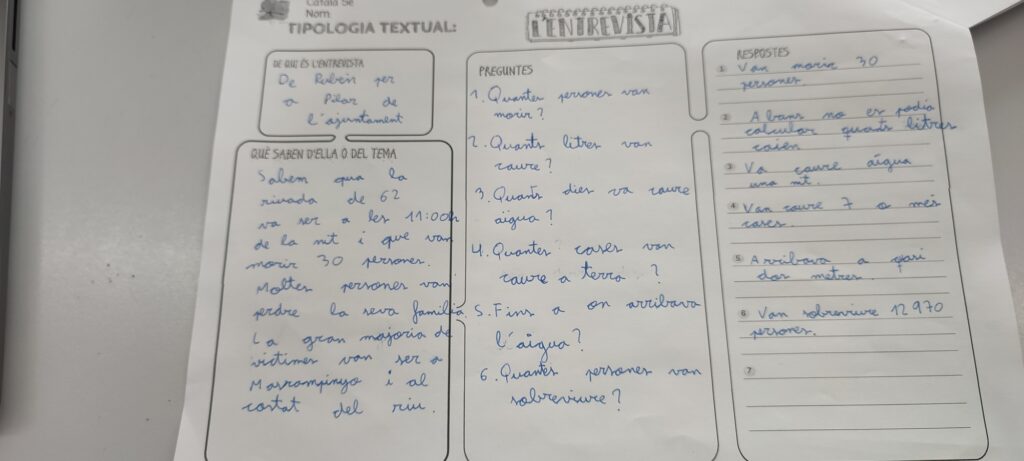 Català 5è
Nom
TIPOLOGIA TEXTUAL:
L'ENTREVISTA
DE QUI ÉS L'ENTREVISTA
De Rubén per
a Pilar de
l'ajuntament
QUÈ SABEN D'ELLA O DEL TEMA
Sabem qua la
riuada de 62
va ser a les 11:00h
de la nit i que van
morir 30 persones.
Moltes persones van
perdre la seva família.
La gran majoria de
victimes van ser a
Masrampinyo i al
costat del riu.
PREGUNTES
1. Quantes persones van
morir?
2. Quants litres van
caure?
3. Quants dies va caure
aïgua?
4. Quantes cases van
caure a terra ?
5. Fins a on arribava
l'aigua?
6. Quantes persones van
sobreviure?
RESPOSTES
1 Van morir 30
persones.
2 Abans no es podia
calcular quants litres
caien
3 Va caure aïgua
una nit.
4 Van caure 7 o més
cases.
5 Arribava a qasi
dos metres.
6 Van sobreviure 12970
persones.
7